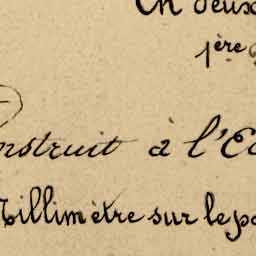 En deux
1ère
Construit à l'E
Millimètre sur le p